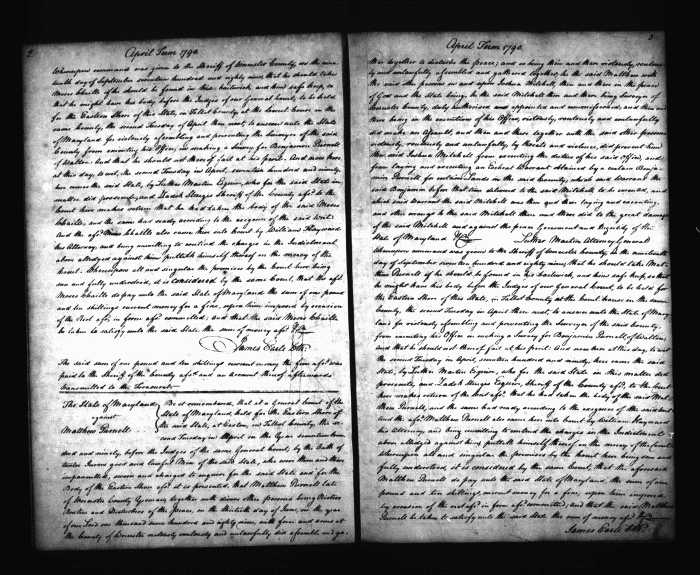 2
April Term 1790
Whereupon command was given to the Sheriff of Worcester County, on the nine-
teenth day of September seventeen hundred and eighty nine, that he should take
Moses Chaille if he should be found in this bailiwick, and him safe keep, so
that he might have his body before the Judges of our General Court, to be held
for the Eastern Shore of this State, in Talbot County at the Court house in the
same County, the second Tuesday of April then next, to answer unto the State
of Maryland for riotously assembling and preventing the Surveyor of the said
County from executing his office, in making a Survey for Benjamin Purnell
of Walton. And that he should not thereof fail at his peril. And now here,
at this day, to wit, the second Tuesday in April, seventeen hundred and ninety,
here comes the said State, by Luther Martin Esquire, who for the said State in this
matter did prosecute, and Zadok Sturges Esquire Sheriff of the County afsd to the
Court here makes return that he had taken the body of the said Moses
Chaille, and the same had ready according to the exigence of the said writ.
and the afsd Moses Chaille also came here into Court by William Hayward
his Attorney, and being unwilling to contend the charges in the Indictment
above alledged against him putteth himself thereof on the mercy of the
Court. Whereupon all and singular the premises by the Court here being
seen and fully understood, it is considered by the same Court, that the afsd
Moses Chaille do pay unto the said State of Maryland the sum of one pound
and ten shillings current money for a fine, upon him imposed by occasion
of the Riot afsd in form afsd committed; and that the said Moses Chaille
be taken to satisfy unto the said State the sum of money afsd
James Earle Clk.
The said sum of one pound and ten shillings current money the fine afsd was
paid to the Sheriff of the County afsd and an account thereof afterwards
transmitted to the Treasurer
The State of Maryland
against
Matthew Purnell
Be it remembered, that at a General Court of the
State of Maryland, held for the Eastern Shore of
the said State, at Easton, in Talbot County, the se-
cond Tuesday in April in the Year seventeen hun-
dred and ninety, before the Judges of the same General Court, by the Oath of
twelve Jurors good and lawful Men of the said State, who were then and there
impannelled, sworn and charged to enquire for the said State and for the
Body of the Eastern Shore afsd it is presented that Matthew Purnell late
of Worcester County Yeoman, together with divers other persons being Rioters
Routers and Disturbers of the peace, on the ninth day of June, in the year
of our Lord one thousand seven hundred and eighty nine, with force and arms at
the County of Worcester riotously routously and unlawfully did assemble and ga-
3
April Term 1790
ther together to disturb the peace; and so being then and there riotously, routous-
ly and unlawfully assembled and gathered together, he the said Matthew with
the said other persons in and upon Joshua Mitchell, then and there in the peace
of God and the State being, he the said Mitchell then and there being Surveyor of
Worcester County, duly authorised and appointed and commissioned, and then and
there being in the execution of his Office, riotously, routously and unlawfully
did make an Assault, and then and there together with the said other persons
riotously, routously and unlawfully, by threats and violence, did prevent him
the said Joshua Mitchell from executing the duties of his said Office, and
from laying and executing an Escheat Warrant obtained by a certain Benja-
min Purnell for certain Lands in the said County, which said Warrant the
said Benjamin before that time delivered to the said Mitchell to be executed, and
which said Warrant the said Mitchell was then and there laying and executing,
and other wrongs to the said Mitchell then and there did to the great damage
of the said Mitchell and against the peace Government and Dignity of the
State of Maryland &c. Luther Martin Attorney General
Whereupon command was given to the Sheriff of Worcester County, on the nineteenth
day of September seventeen hundred and eighty nine, that he should take Mat-
thew Purnell if he should be found in his bailiwick, and him safe keep, so that
he might have his body before the Judges of our General Court, to be held for
the Eastern Shore of this State, in Talbot County at the Court house in the same
County, the second Tuesday in April then next, to answer unto the State of Mary-
land for riotously assembling and preventing the Surveyor of the said County,
from executing his Office in making a survey for Benjamin Purnell of Walton;
and that he should not thereof fail at his peril. And now here at this day, to wit
the second Tuesday in April, seventeen hundred and ninety, here comes the said
State, by Luther Martin Esquire, who for the said State in this matter did
prosecute, and Zadok Sturges Esquire, Sheriff of the County afsd, to the Court
here makes return of the writ afsd that he had taken the body of the said Mat-
thew Purnell, and the same had ready according to the exigence of the said writ
and the afsd Matthew Purnell also came here into Court by William Hayward
his Attorney, and being unwilling to contend the charges in the Indictment
above alledged against him putteth himself thereof on the mercy of the Court.
Whereupon all and singular the premises by the Court here being seen and
fully understood, it is considered by the same Court, that the aforesaid
Matthew Purnell do pay unto the said State of Maryland, the sum of one
pound and ten shillings current money for a fine, upon him imposed
by occasion of the riot afsd in form afsd committed; and that the said Matthew
Purnell be taken to satisfy unto the said State the sum of money afsd
James Earle Clk.